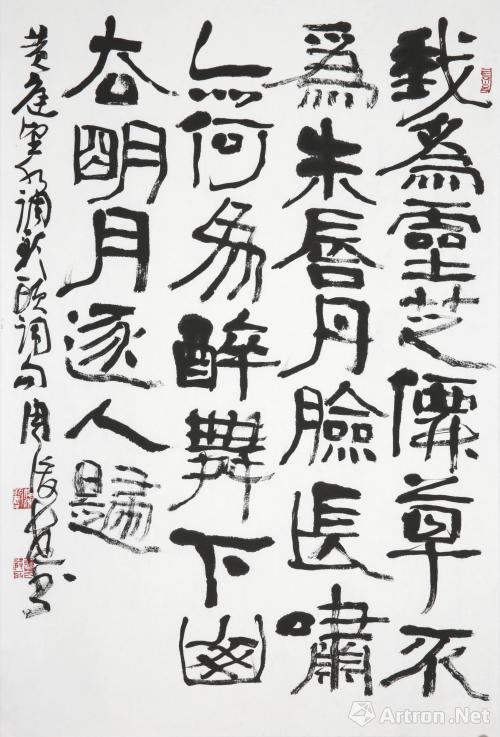 我為靈芝僊草不
為朱唇丹臉長嘯
亦何為醉舞下山
去明月逐人歸
黄庭坚水調歌头詞句 周俊杰书
Artron.Net